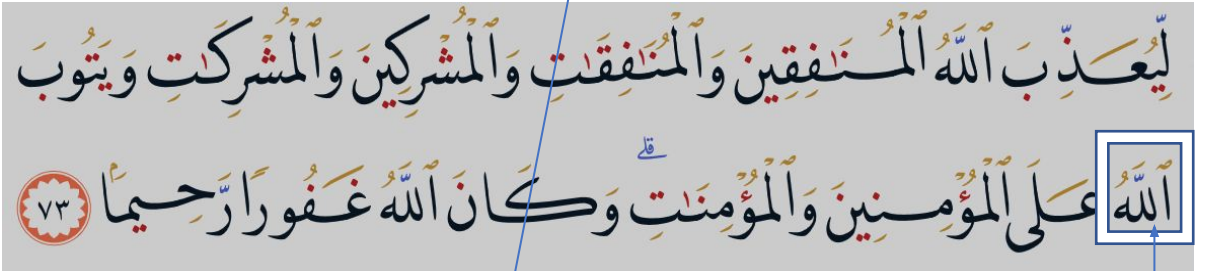 لِّيُعَذِّبَ ٱللَّهُ ٱلْمُنَـٰفِقِينَ وَٱلْمُنَـٰفِقَـٰتِ وَٱلْمُشْرِكِينَ وَٱلْمُشْرِكَـٰتِ وَيَتُوبَ
ٱللَّهُ عَلَى ٱلْمُؤْمِنِينَ وَٱلْمُؤْمِنَـٰتِ ۗ وَكَانَ ٱللَّهُ غَفُورًا رَّحِيمًۢا ٧٣